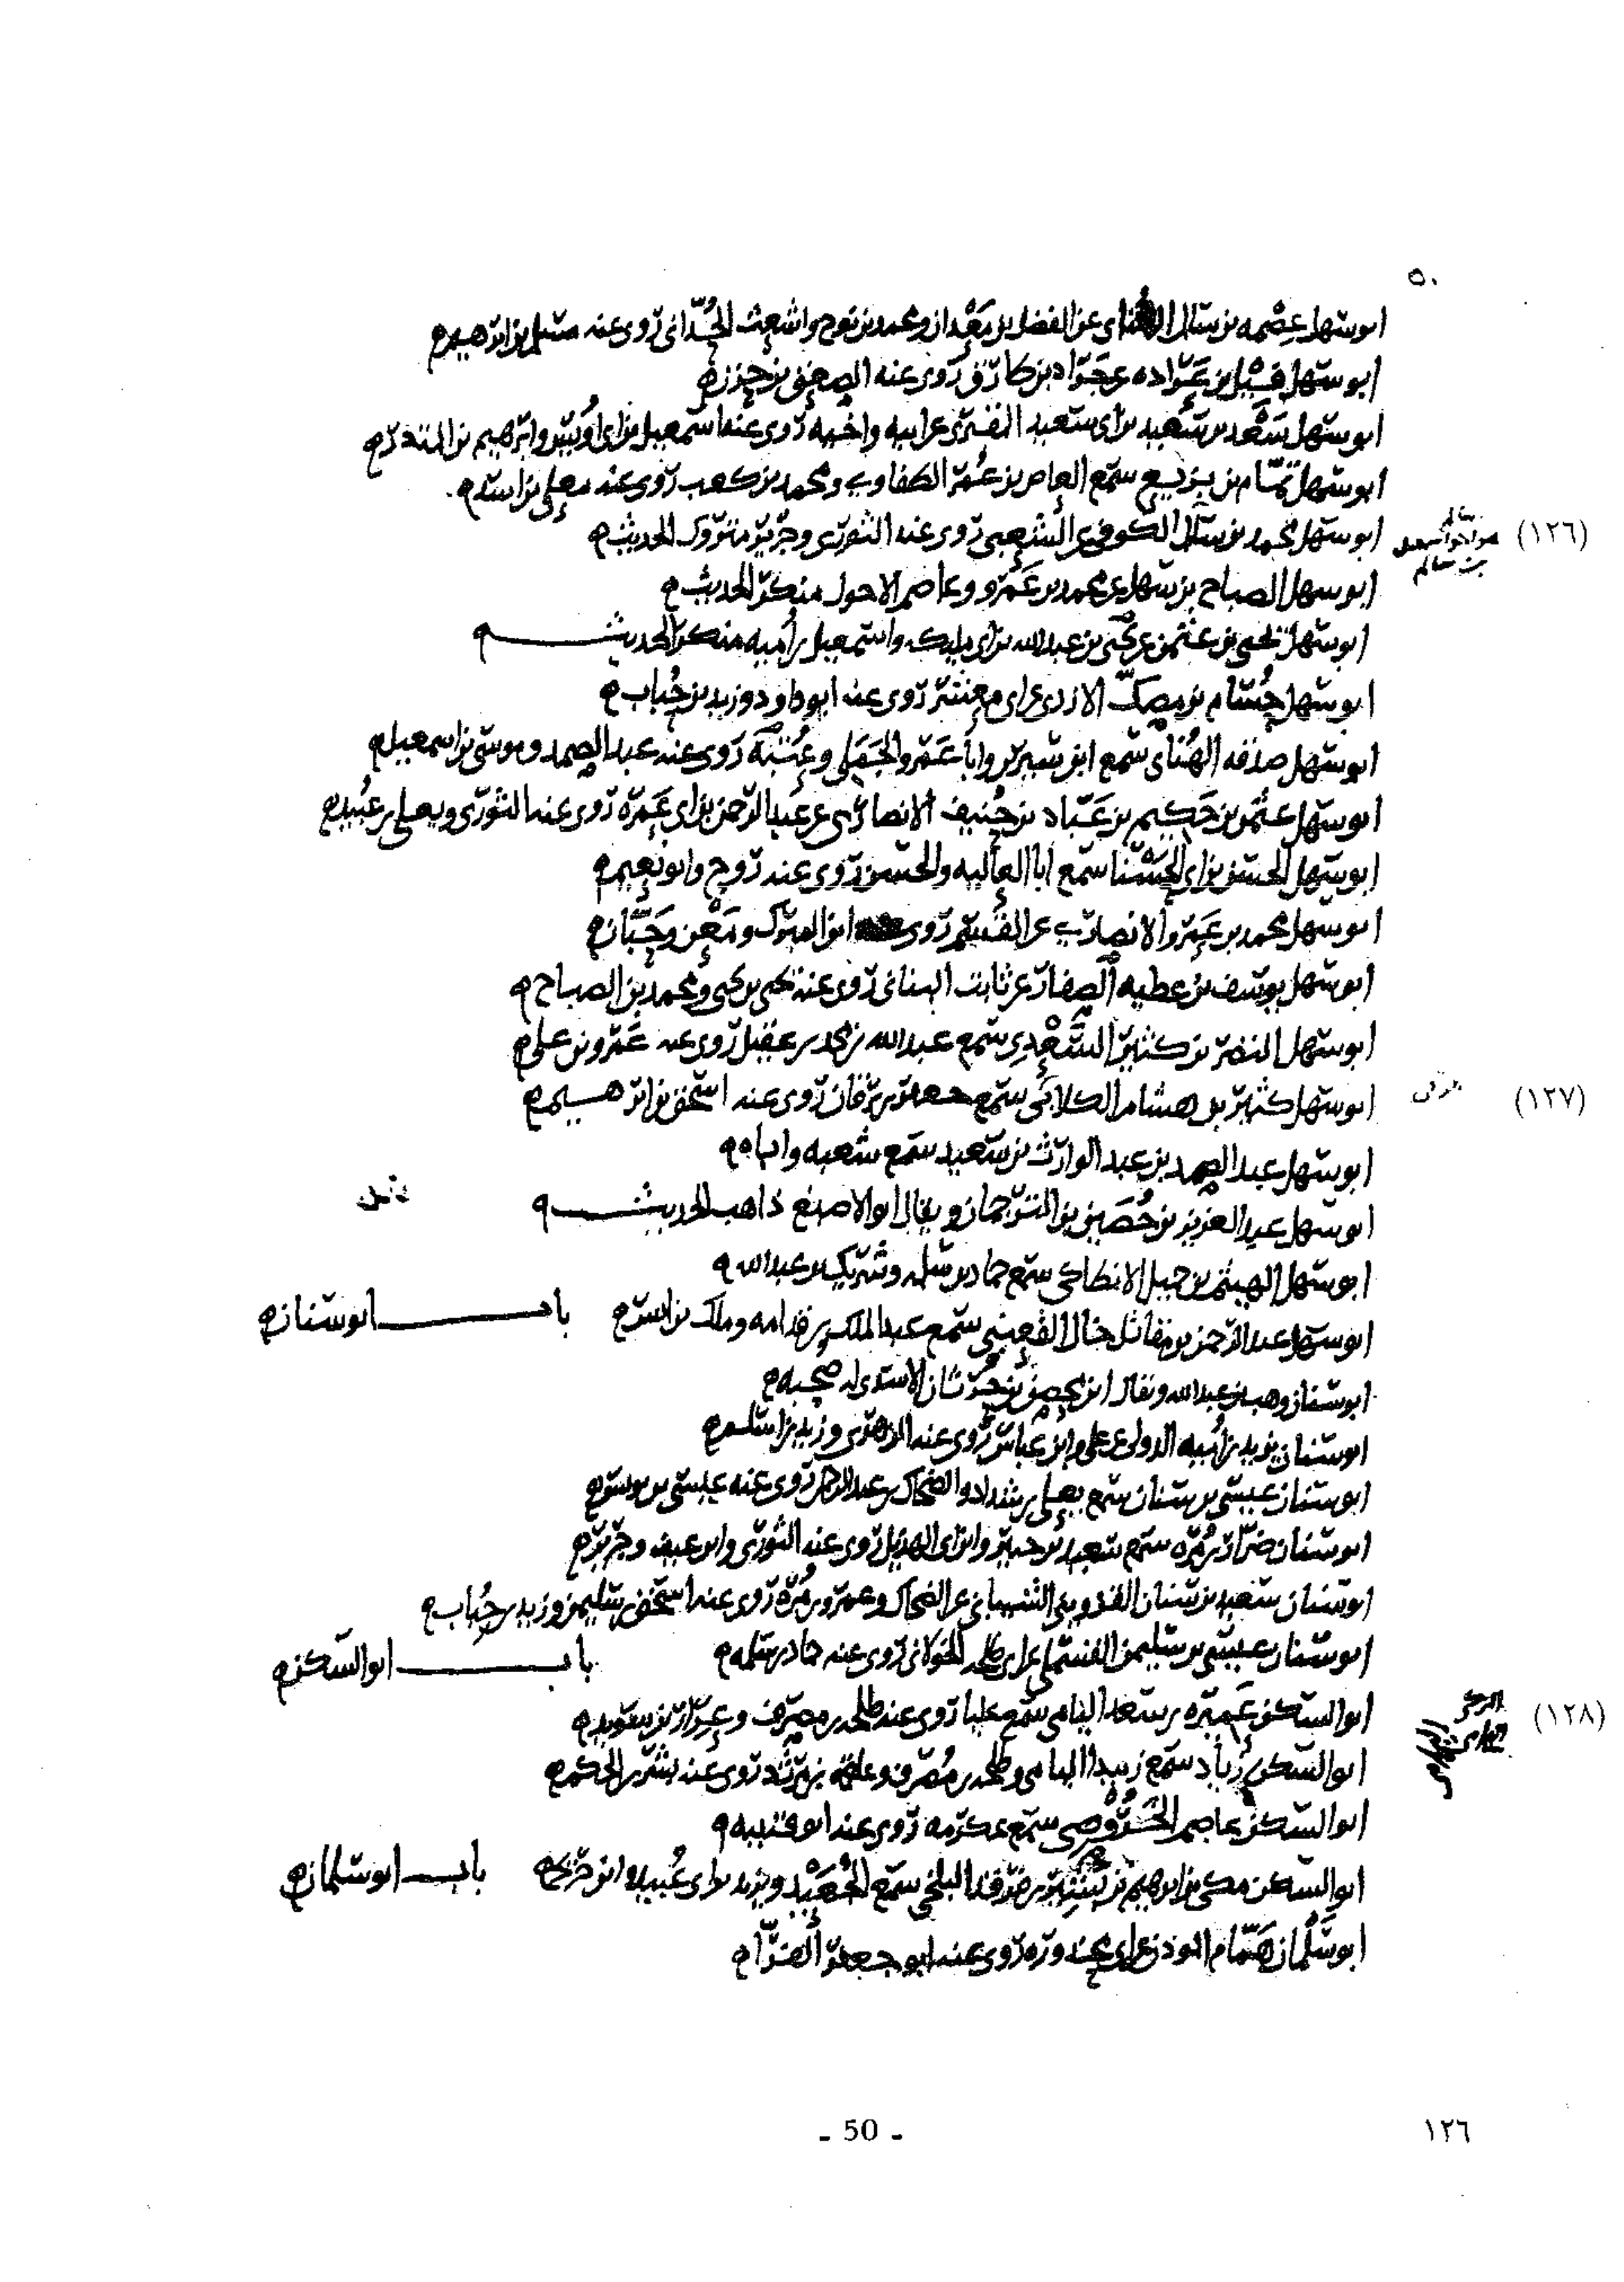 ٥٠
ابو سهل عصمه بن سالم الهنائى عن الفضل بن معدان ومحمد بن نوح واشعث الحدانى روى عنه مسلم بن ابرهيم
ابو سهل بن عواده عن جواد بن طارق روى عنه الصعق بن حزن
ابو سهل سعد بن سعيد بن ابى سعيد المقبرى عن ابيه واخيه روى عنه اسمعيل بن ابى اويس وابرهيم بن المنذر
ابو سهل تمام بن بزيع سمع العاص بن عمر الطفاوى ومحمد بن كعب روى عنه معلى بن اسد
ابو سهل محمد بن سالم الكوفى عن الشعبى روى عنه الثورى وجرير متروك الحديث
(١٢٦)
ابو سهل الصباح بن سهل عن محمد بن عمرو وعاصم الاحول منكر الحديث
ابو سهل يحيى بن عثمن عن يحيى بن عبد الله بن ابى مليك واسمعيل بن اميه منكر الحديث
ابو سهل حسام بن مصك الازدى عن ابى معشر روى عنه ابو داود وزيد بن حباب
ابو سهل صدقه الهنائى سمع ابن سيرين وابا عمرو الجملى وعتبة روى عنه عبد الصمد وموسى بن اسمعيل
ابو سهل عثمن بن حكيم بن عباد بن حنيف الانصارى عن عبد الرحمن بن ابى عمره روى عنه الثورى ويعلى بن عبيد
ابو سهل الحسن بن ابى الحسنا سمع ابا العاليه والحسن روى عنه روح وابو نعيم
ابو سهل محمد بن عمرو الانصارى عن القسم روى ابن المبرك ومعن وحبان
ابو سهل يوسف بن عطيه الصفار عن ثابت البنانى روى عنه يحيى بن يحيى ومحمد بن الصباح
ابو سهل النضر بن كثير السعدى سمع عبد الله بن محمد بن عقيل روى عنه عمرو بن على
ابو سهل كثير بن هشام الكلابى سمع جعفر بن برقان روى عنه اسحق بن ابرهيم
(١٢٧)
ابو سهل عبد الصمد بن عبد الوارث بن سعيد سمع شعبه واباه
ابو سهل عبد العزيز بن حصين بن الترجمان ويقال ابو الاصبغ ذاهب الحديث
ابو سهل الهيثم بن جميل الانطاكى سمع حماد بن سلمه وشريك بن عبد الله
ابو سهل عبد الرحمن بن مقاتل خال القعنبى سمع عبد الملك بن قدامه وملك بن انس
باب ابو سنان
ابو سنان وهب بن عبد الله ويقال ابن محصن بن حرثان الاسدى له صحبه
ابو سنان يزيد بن اميه الدولى عن على وابن عباس روى عنه الزهرى وزيد بن اسلم
ابو سنان عيسى بن سنان سمع يعلى بن شداد والضحاك بن عبد الرحمن روى عنه عيسى بن يونس
ابو سنان ضرار بن مره سمع سعيد بن جبير وابن ابى الهذيل روى عنه الثورى وابن عيينه وجرير
ابو سنان سعيد بن سنان القزوينى الشيبانى عن الضحاك وعمرو بن مره روى عنه اسحق بن سليمن وزيد بن حباب
ابو سنان عيسى بن سليمن القسملى عن ابى طلحه الخولانى روى عنه حماد بن سلمه
باب ابو السكن
ابو السكن عميره بن سعد اليامى سمع عليا روى عنه طلحه بن مصرف وعرار بن سويد
(١٢٨)
ابو السكن زياد سمع زبيدا اليامى وطلحه بن مصرف وعلقمه بن مرثد روى عنه بشر بن الحكم
ابو السكن عاصم سمع عكرمه روى عنه ابو قتيبه
ابو السكن مكى بن ابرهيم بن بشير بن فرقد البلخى سمع الجعيد ويزيد بن ابى عبيد وابن جريج
باب ابو سلمان
ابو سلمان همام الموذن عن ابى محذوره روى عنه ابو جعفر الفرا
- 50 -
١٢٦